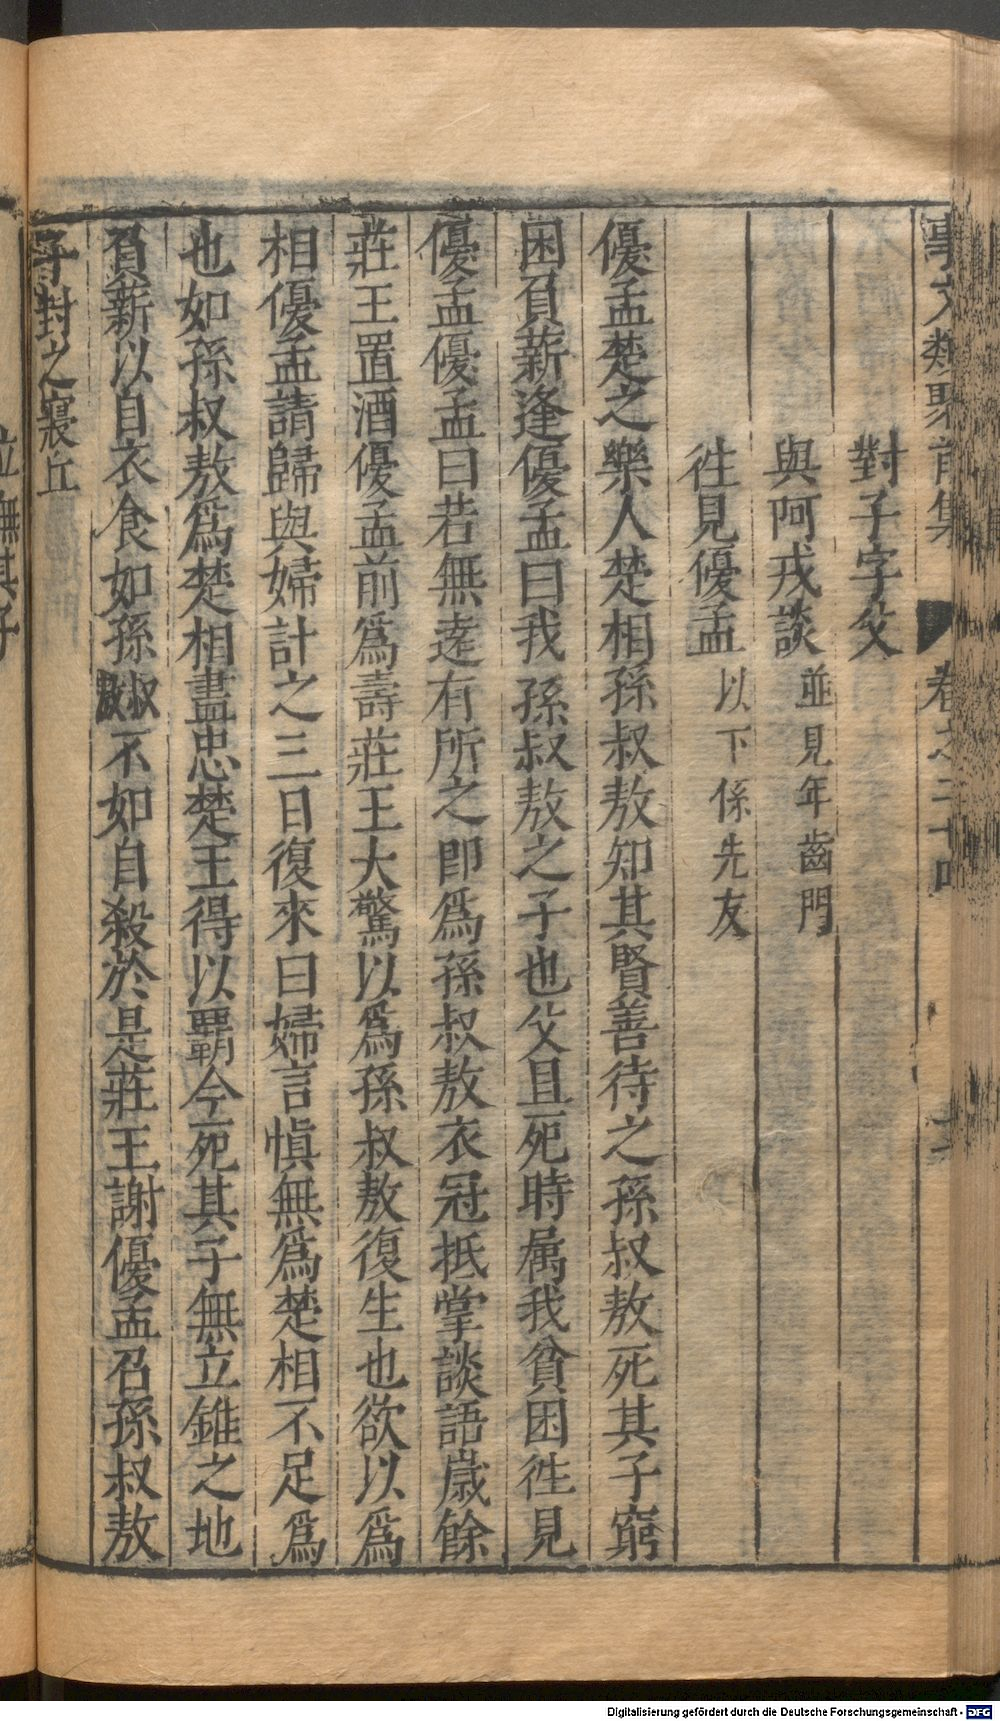 事文類聚前集　卷之二十
對子字父
與阿戎談　並見年齒門
徃見優孟　以下係先友
優孟楚之樂人楚相孫叔敖知其賢善待之孫叔敖死其子窮
困負薪逢優孟曰我孫叔敖之子也父且死時属我貧困徃見
優孟優孟曰若無逺有所之即爲孫叔敖衣冠抵掌談語歲餘
莊王置酒優孟前爲壽莊王大驚以爲孫叔敖復生也欲以爲
相優孟請歸與婦計之三日復來曰婦言慎無爲楚相不足爲
也如孫叔敖爲楚相盡忠楚王得以覇今死其子無立錐之地
負薪以自衣食如孫叔敖不如自殺於是莊王謝優孟召孫叔敖
子封之寢丘
Digitalisierung gefördert durch die Deutsche Forschungsgemeinschaft - DFG